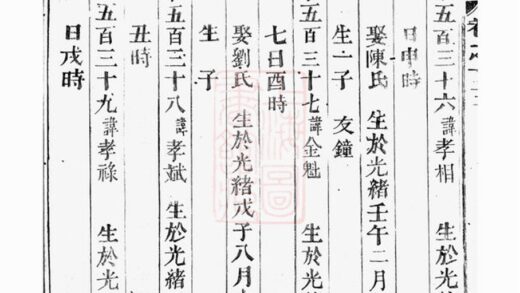 五百三十六諱孝相 生於光
日申時
娶陳氏 生於光緒壬午二月
生一子 友鐘
五百三十七諱金魁 生於光
七日酉時
娶劉氏 生於光緒戊子八月
生 子
五百三十八諱孝斌 生於光緒
丑時
五百三十九諱孝祿 生於光
日戌時